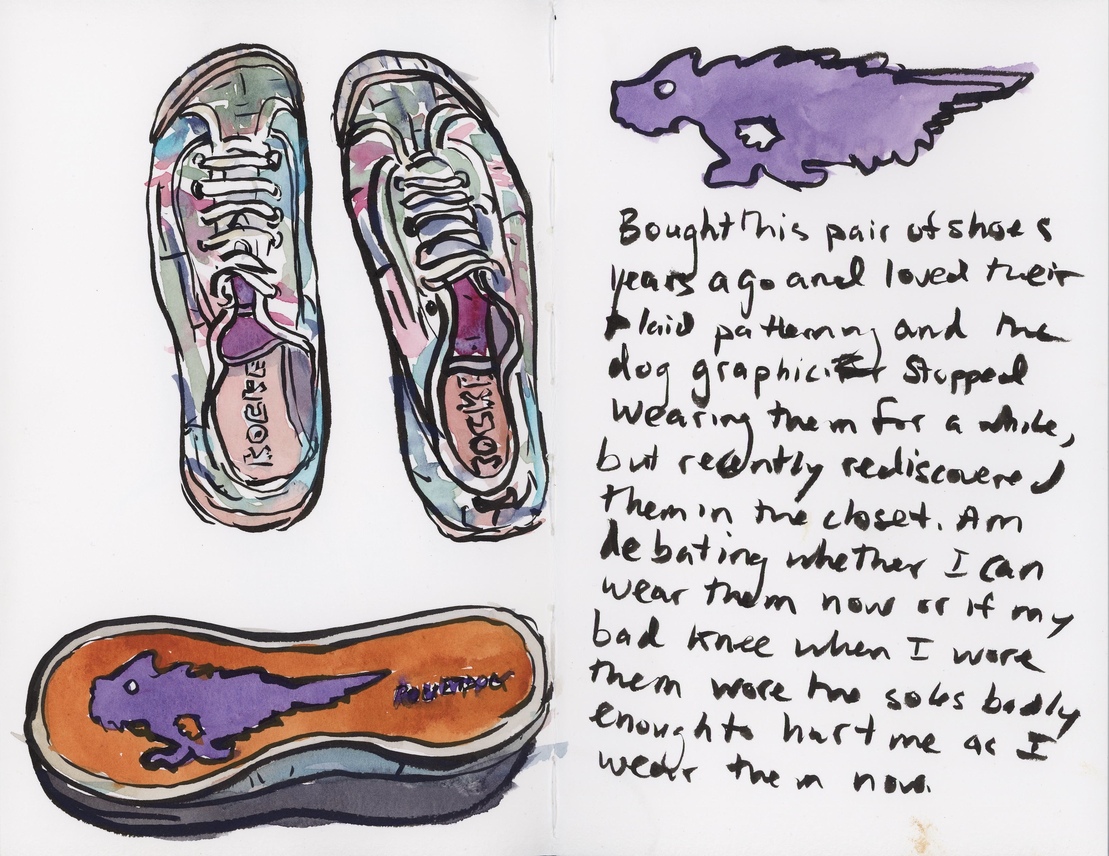 ROCKE
ROCKE
Bought this pair of shoes
years ago and loved their
plaid patterning and the
dog graphic. Stopped
wearing them for a while,
but recently rediscovered
them in the closet. Am
debating whether I can
wear them now or if my
bad knee when I wore
them wore the soles badly
enough to hurt me as I
wear them now.